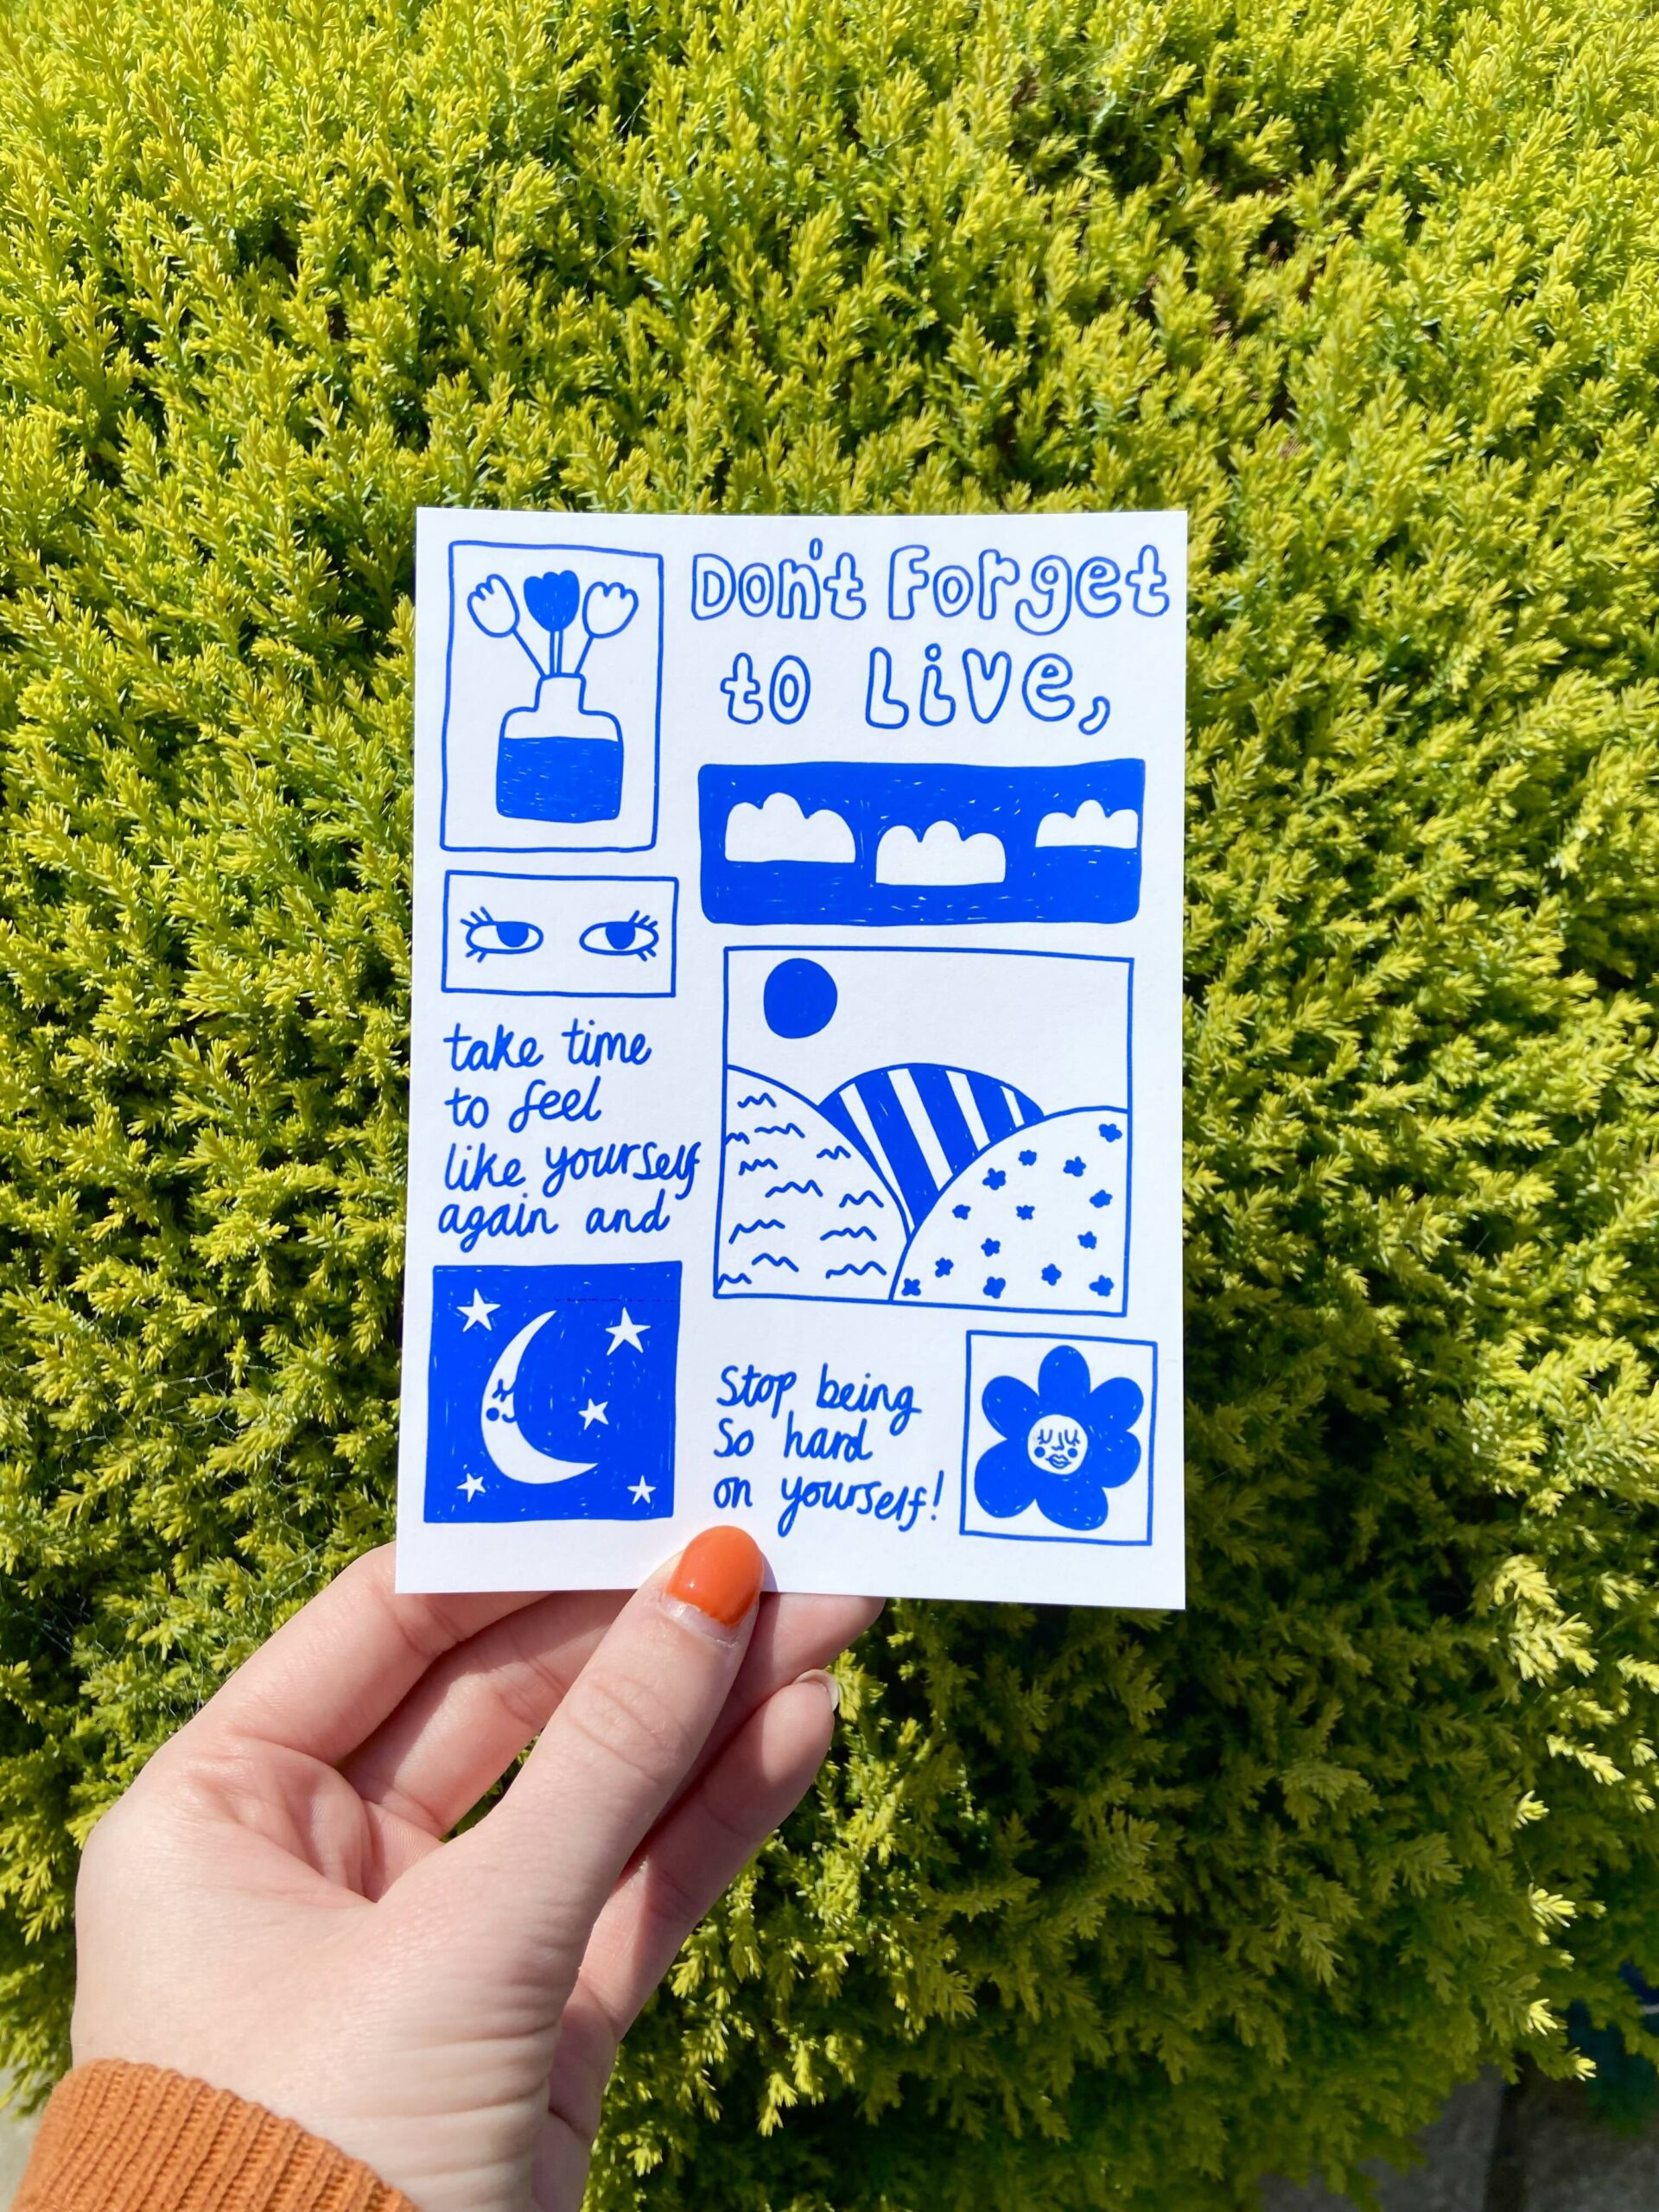 Don't Forget
to Live,
take time
to feel
like yourself
again and
Stop being
So hard
on yourself!